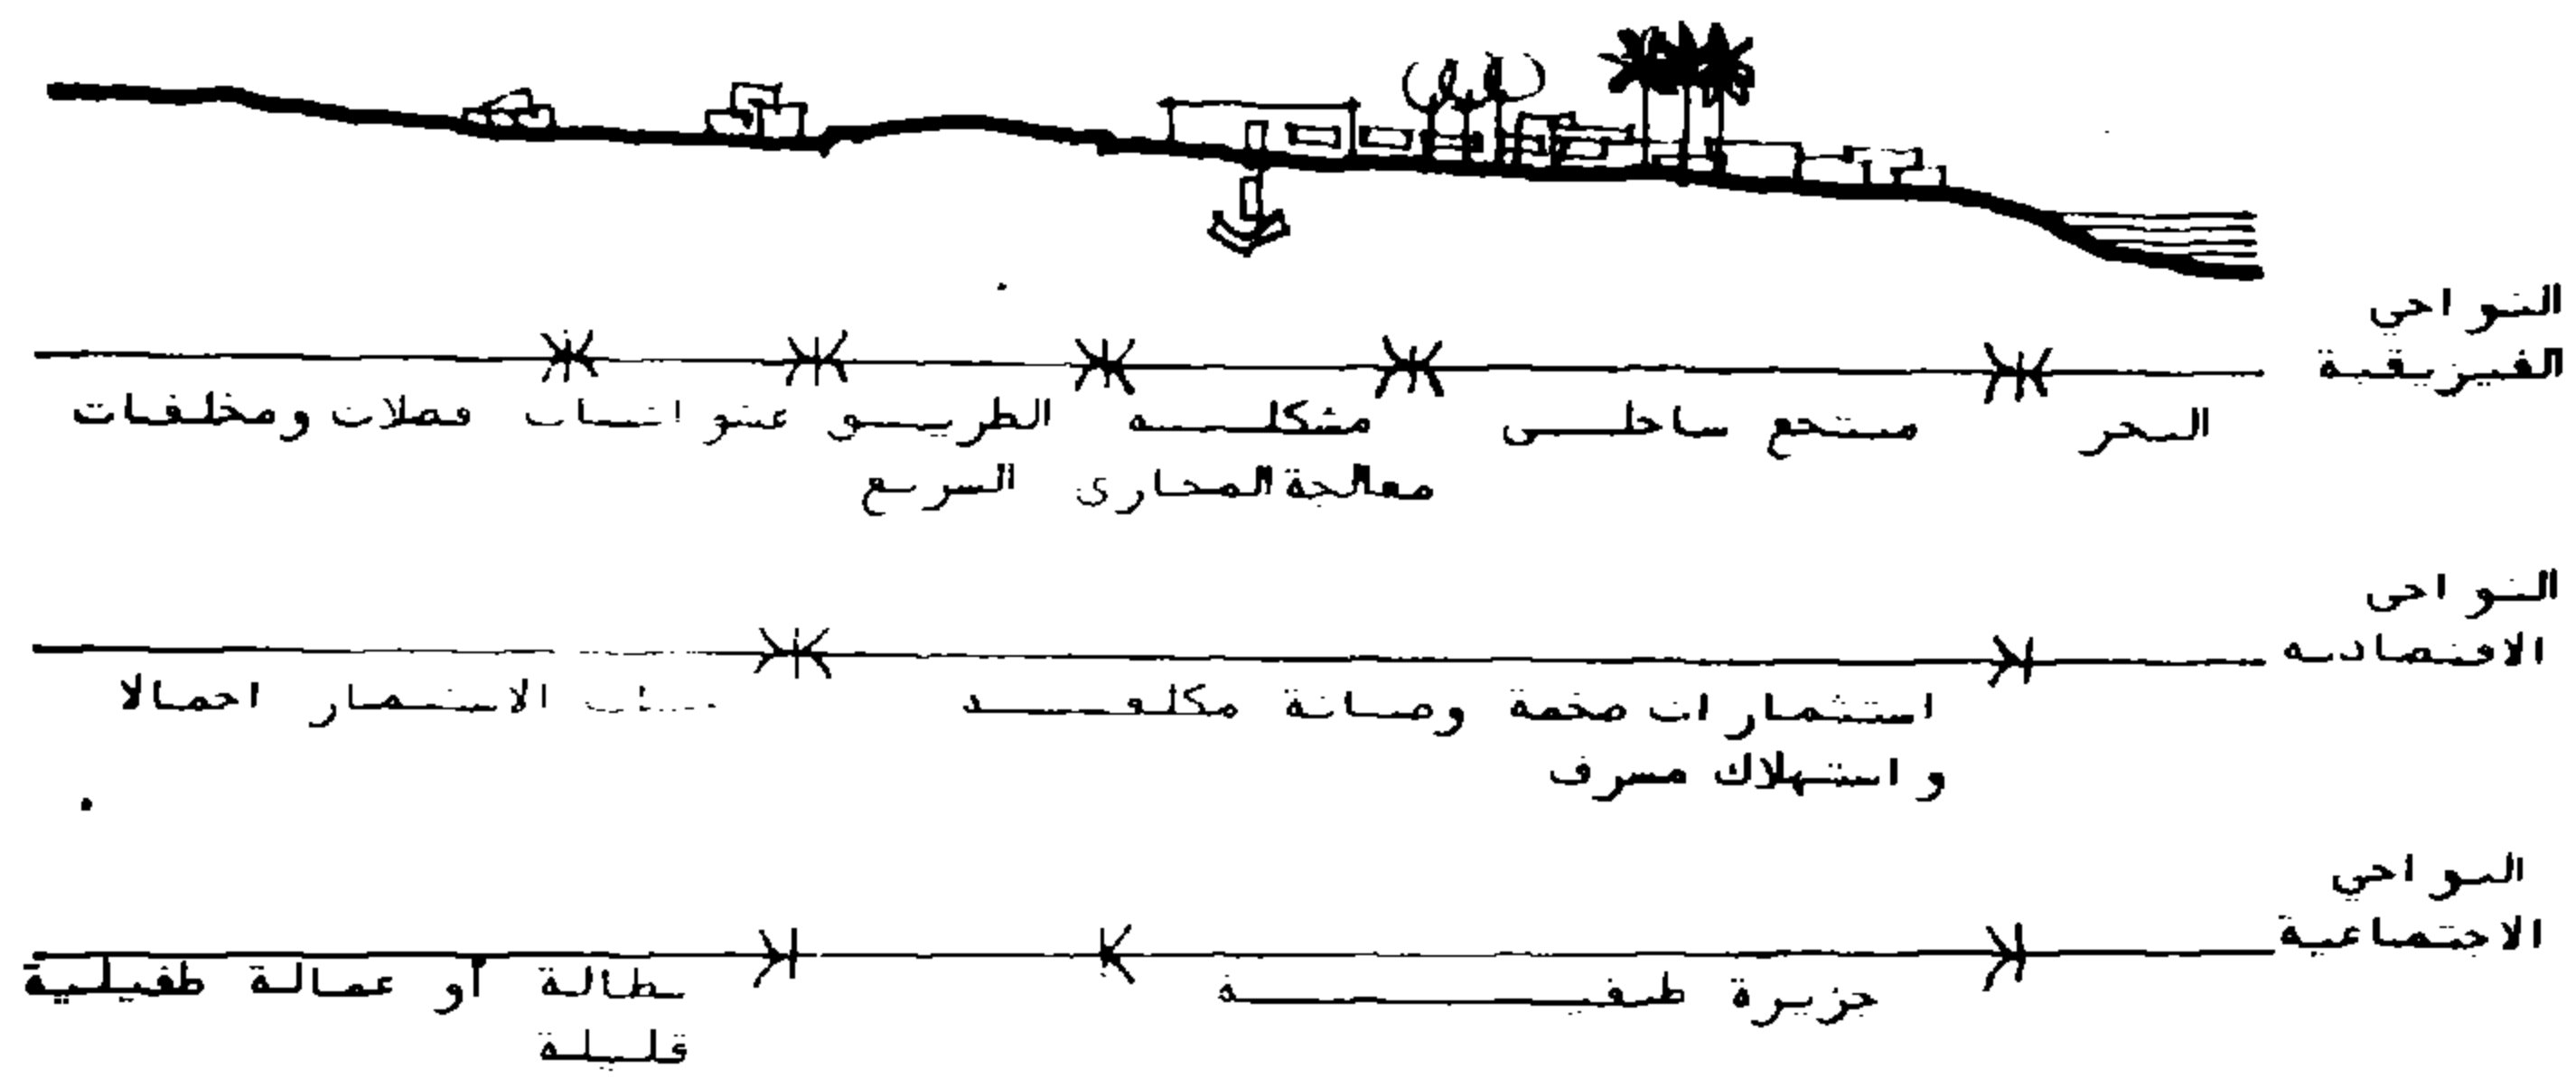 النواحي
الفيزيقية
البحر
منتجع ساحلى
مشكلـــه
معالجة المجارى
الطريـــق
السريع
عشوائيات
فضلات ومخلفات
النواحى
الاقتصاديه
استثمارات ضخمة وصيانة مكلفـــه
واستهلاك مسرف
الاستثمار اجمالا
النواحي
الاجتماعية
جزيرة طبقيـــــة
بطالة أو عمالة طفيلية
قليلة